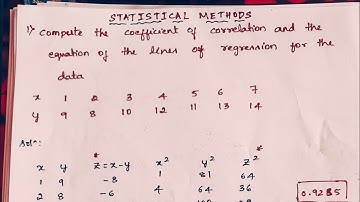 STATISTICAL METHODS
1) Compute the coefficient of correlation and the
equation of the lines of regression for the
data
x 1 2 3 4 5 6 7
y 9 8 10 12 11 13 14
Soln:
* *
x y z=x-y x² y² z²
1 9 -8 1 81 64
2 8 -6 4 64 36
0.9285